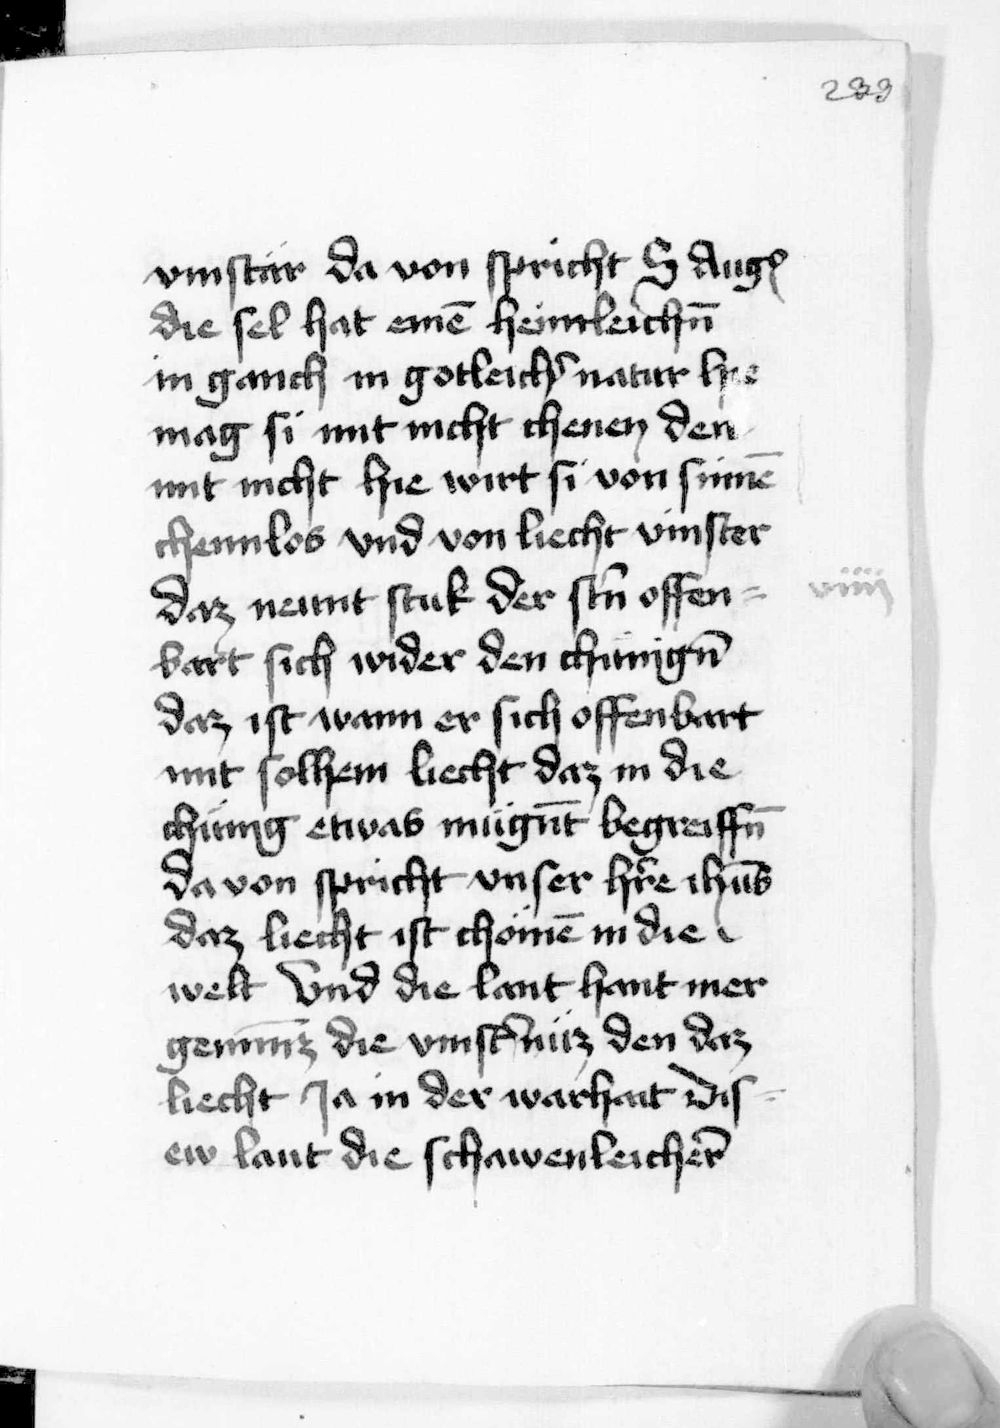 233
vinstär da von spricht S Aug
die sel hat einē heimleichn̄
in ganch in gotleichr̄ natur hie
mag si mit nicht chenen den
mit nicht hie wirt si von sinnē
chennlos vnd von liecht vinster
daz neunt stuk der stn̄ offen=
viiij
bart sich wider den chünign̄
daz ist wann er sich offenbart
mit solhem liecht daz in die
chünig etwas mügn̄t begreiffn̄
da von spricht vnser hr̄e ihūs
daz liecht ist chömē in die
welt Vnd die laut hant mer
gemīnt die vinst̄nüz den daz
liecht Ja in der warhait Dis=
ew laut die schawenleicher̄